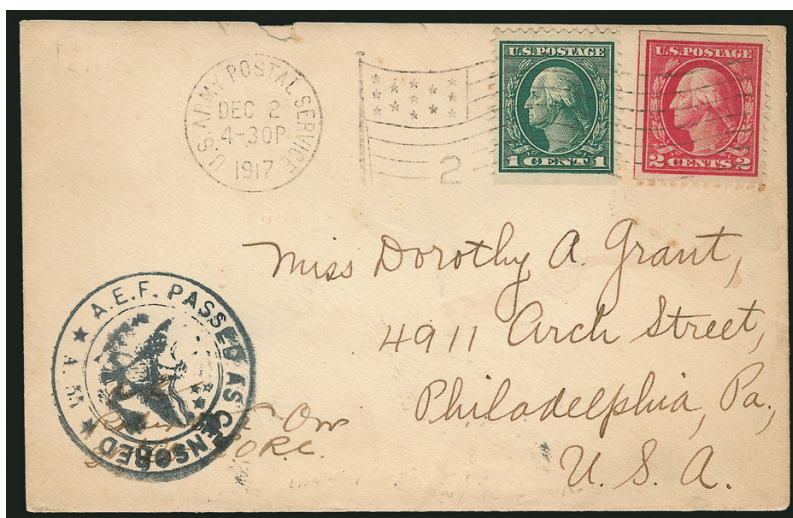 U.S. ARMY POSTAL SERVICE
DEC 2
4-30P
1917
2
U.S. POSTAGE
1 CENT 1
U.S. POSTAGE
2 CENTS 2
Miss Dorothy A. Grant,
4911 Arch Street,
Philadelphia, Pa.,
U. S. A.
A.E.F. PASSED AS CENSORED
ORC.